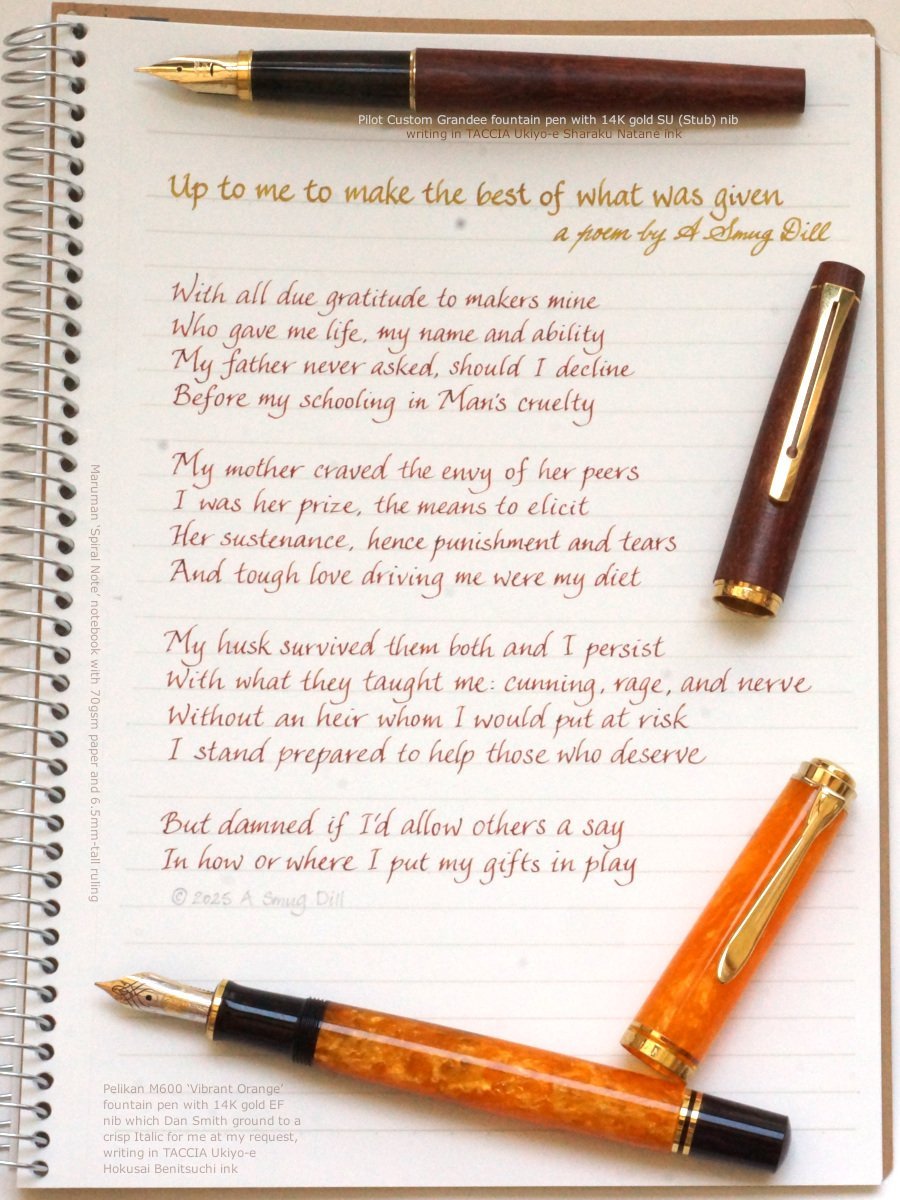 Pilot Custom Grandee fountain pen with 14K gold SU (Stub) nib
writing in TACCIA Ukiyo-e Sharaku Natane ink
Up to me to make the best of what was given
a poem by A Smug Dill
With all due gratitude to makers mine
Who gave me life, my name and ability
My father never asked, should I decline
Before my schooling in Man's cruelty
My mother craved the envy of her peers
I was her prize, the means to elicit
Her sustenance, hence punishment and tears
And tough love driving me were my diet
My husk survived them both and I persist
With what they taught me: cunning, rage, and nerve
Without an heir whom I would put at risk
I stand prepared to help those who deserve
But damned if I'd allow others a say
In how or where I put my gifts in play
© 2025 A Smug Dill
Maruman 'Spiral Note' notebook with 70gsm paper and 6.5mm-tall ruling
Pelikan M600 'Vibrant Orange'
fountain pen with 14K gold EF
nib which Dan Smith ground to a
crisp Italic for me at my request,
writing in TACCIA Ukiyo-e
Hokusai Benitsuchi ink